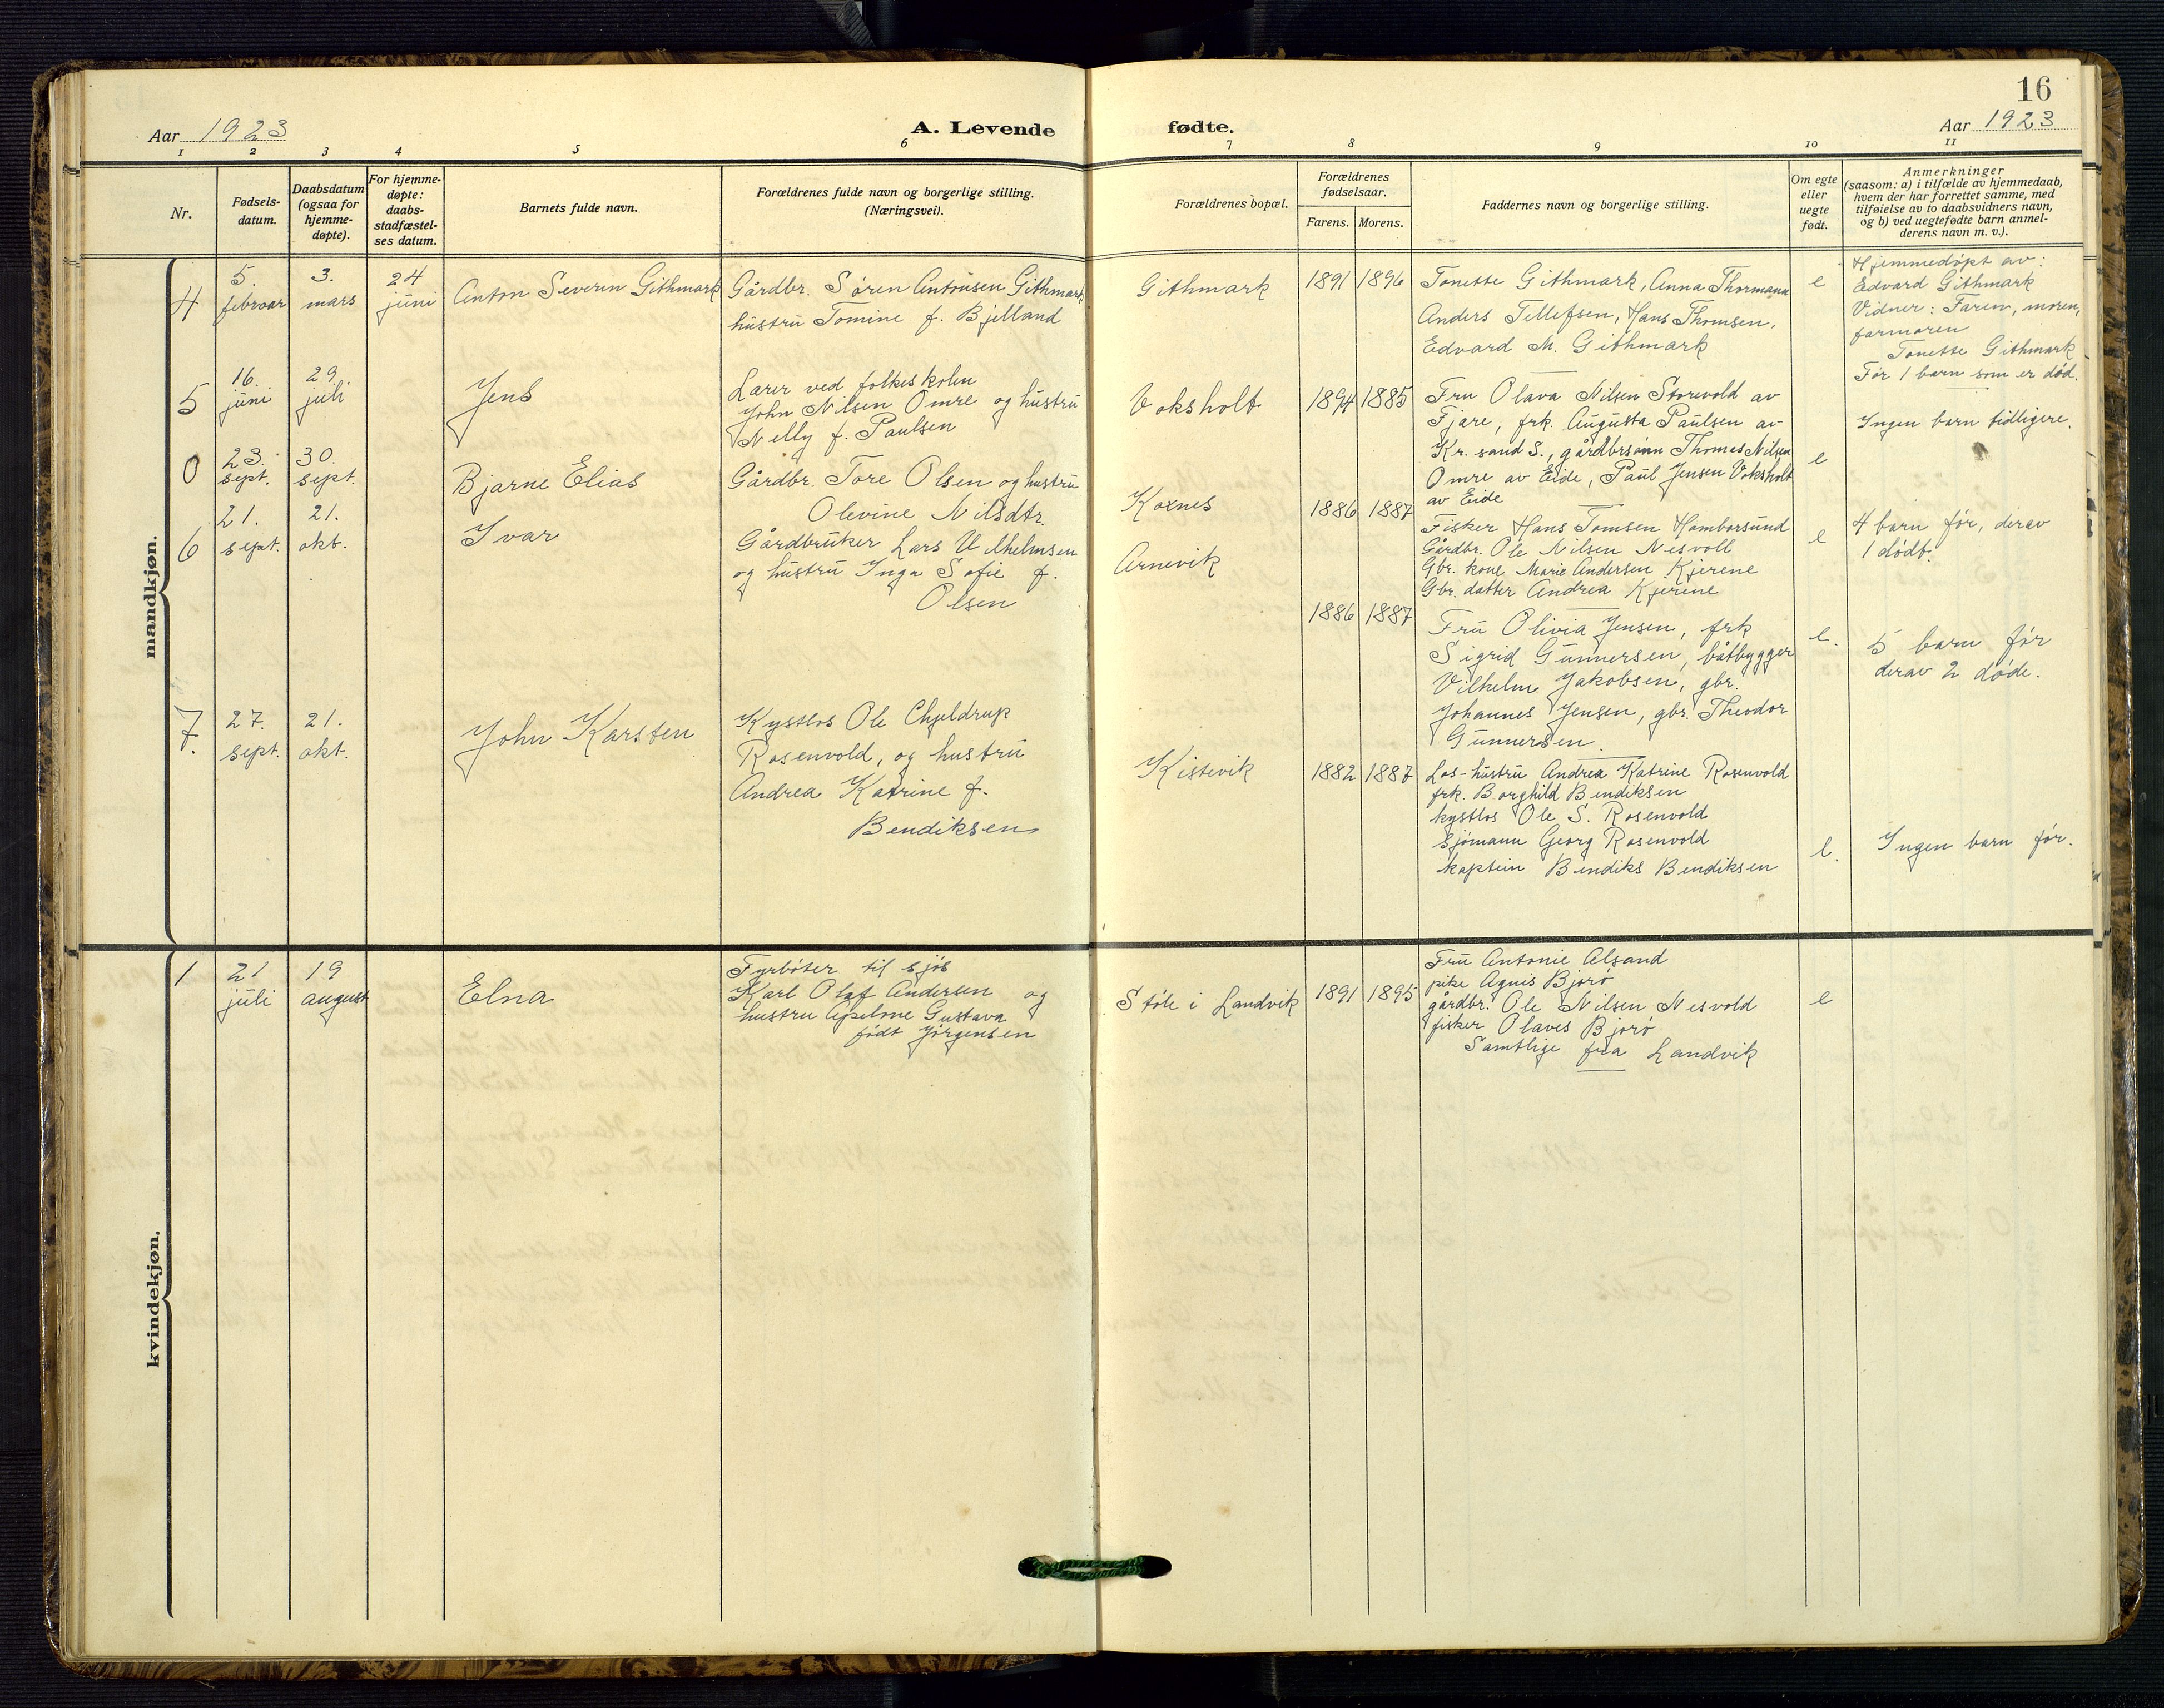 16
Aar 1923
A. Levende
fødte.
Aar 1923
1 2 3 4 5 6 7 8 9 10 11
Nr.
Fødsels-
datum.
Daabsdatum
(ogsaa for
hjemme-
døpte).
For hjemme-
døpte:
daabs-
stadfæstel-
ses datum.
Barnets fulde navn.
Forældrenes fulde navn og borgerlige stilling.
(Næringsvei).
Forældrenes bopæl.
Forældrenes
fødselsaar.
Farens. Morens.
Faddernes navn og borgerlige stilling.
Om egte
eller
uegte
født.
Anmerkninger
(saasom: a) i tilfælde av hjemmedaab,
hvem der har forrettet samme, med
tilføielse av to daabsvidners navn,
og b) ved uegtefødte barn anmel-
derens navn m. v.).
mandkjøn.
4
5.
februar
3.
mars
24
juni
Anton Severin Githmark
Gårdbr. Søren Antonsen Githmark
hustru Tomine f. Bjelland
Githmark
1891 1896
Tonette Githmark, Anna Thormann
Anders Tellefsen, Hans Thomsen,
Edvard M. Githmark
e
Hjemmedøpt av:
Edvard Githmark
Vidner: Faren, moren,
farmoren
Tonette Githmark
Før 1 barn som er død.
5
16.
juni
29.
juli
Jens
Lærer ved folkeskolen
John Nilsen Omre og hustru
Nelly f. Paulsen
Voksholt
1894 1885
Fru Olava Nilsen Storevold av
Fjære, frk. Augusta Paulsen av
Kr. sand S., gårdbrsønn Thomas Nilsen
Omre av Eide, Paul Jensen Voksholt
av Eide
e
Ingen barn tidligere.
0
23.
sept.
30.
sept.
Bjarne Elias
Gårdbr. Tore Olsen og hustru
Olevine Nilsdtr.
Kornes
1886 1887
Fisker Hans Tomsen Homborsund
Gårdbr. Ole Nilsen Nesvoll
Gbr. kone Marie Andersen Kjerene
Gbr. datter Andrea Kjerene
e
4 barn før, derav
1 dødf.
6
21.
sept.
21.
okt.
Ivar
Gårdbruker Lars Vilhelmsen
og hustru Inga Sofie f.
Olsen
Arnevik
1886 1887
Fru Olivia Jensen, frk
Sigrid Gunnersen, båtbygger
Vilhelm Jakobsen, gbr.
Johannes Jensen, gbr. Theodor
Gunnersen.
e.
5 barn før
derav 2 døde.
7.
27.
sept.
21.
okt.
John Karsten
Kystlos Ole Chjeldrup
Rosenvold, og hustru
Andrea Katrine f.
Bendiksen
Kistevik
1882 1887
Los-hustru Andrea Katrine Rosenvold
frk. Borghild Bendiksen
kystlos Ole S. Rosenvold
Sjømann Georg Rosenvold
kaptein Bendiks Bendiksen
e.
Ingen barn før.
kvindekjøn.
1
21
juli
19
august
Elna
Fyrbøter til sjøs
Karl Olaf Andersen og
hustru Apelone Gustava
født Jørgensen
Støle i Landvik
1891 1895
Fru Antonie Alsand
pike Agnis Bjorø
gårdbr. Ole Nilsen Nesvold
fisker Olaves Bjorø
Samtlige fra Landvik
e